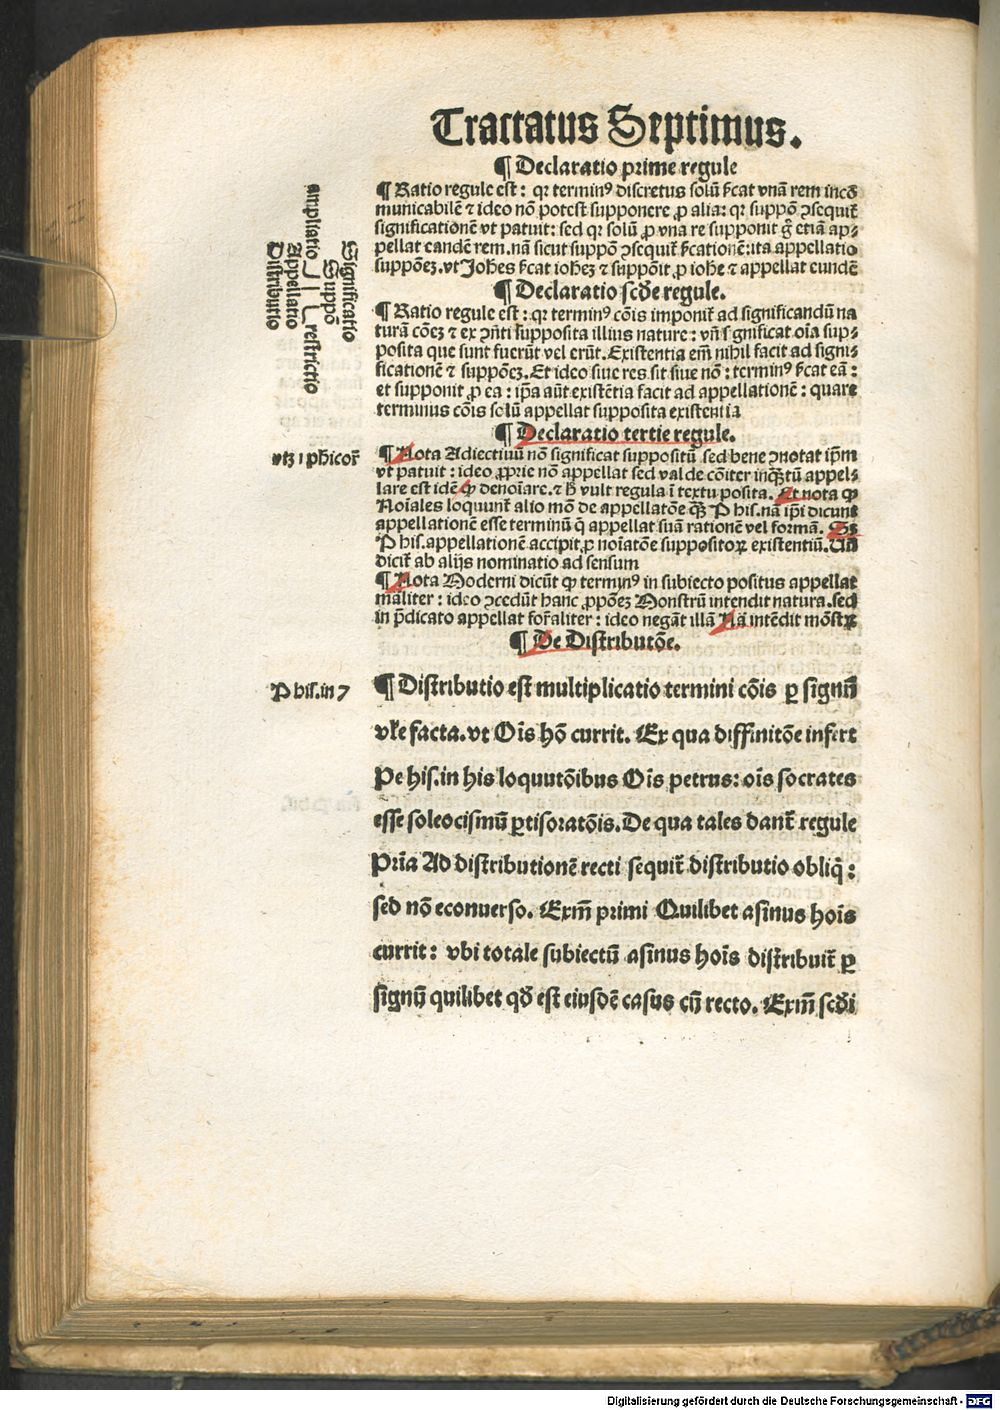 Tractatus Septimus.
¶ Declaratio prime regule
¶ Ratio regule est: qꝛ terminꝰ discretus solū ſ̄cat vnā rem incō
municabilē ⁊ ideo nō potest supponere ꝓ alia: qꝛ suppō ꝯsequit̄
significationē vt patuit: sed qꝛ solū ꝓ vna re supponit g̊ etiā ap⸗
pellat eandē rem. nā sicut suppō ꝯsequit̄ ſ̄cationē: ita appellatio
suppōeꝫ. vt Johēs ſ̄cat iohēꝫ ⁊ suppōit ꝓ iohē ⁊ appellat eundē
¶ Declaratio scd̄e regule.
¶ Ratio regule est: qꝛ terminꝰ cōis imponit̄ ad significandū na
turā cōeꝫ ⁊ ex ꝯn̄ti supposita illius nature: vn̄ significat oīa sup⸗
posita que sunt fuerūt vel erūt. Existentia em̄ nihil facit ad signi⸗
ficationē ⁊ suppōeꝫ. Et ideo siue res sit siue nō: terminꝰ ſ̄cat eā:
et supponit ꝓ ea: ip̄a aūt existētia facit ad appellationē: quare
terminus cōis solū appellat supposita existentia
¶ Declaratio tertie regule.
¶ Nota Adiectiuū nō significat suppositū sed bene ꝯnotat ip̄m
vt patuit: ideo ꝓprie nō appellat sed valde cōiter inqꝫtū appel⸗
lare est idē qꝫ denoīare. ⁊ ꝉ vult regula ī textu posita. Et nota ꝙ
Noīales loquunt̄ alio mō de appellatōe qꝫ P his. nā ip̄i dicunt
appellationē esse terminū q̄ appellat suā rationē vel formā. Sꝫ
P his. appellationē accipit ꝓ noīatōe suppositoꝝ existentiū. Uñ
dicit̄ ab alijs nominatio ad sensum
¶ Nota Moderni dicūt ꝙ terminꝰ in subiecto positus appellat
maliter: ideo ꝯcedūt hanc ꝓpōeꝫ Monstrū intendit natura. sed
in p̄dicato appellat for̄aliter: ideo negāt illā Nā intēdit mōstꝝ
¶ De Distributōe.
¶ Distributio est multiplicatio termini cōis ꝑ signū
vl̄e facta. vt Oīs hō currit. Ex qua diffinitōe infert
Pe his. in his loquutōibus Oīs petrus: oīs socrates
esse soleocismū ꝑtis oratōis. De qua tales dant̄ regule
Pr̄ia Ad distributionē recti sequit̄ distributio obliq̄:
sed nō econuerso. Exm̄ primi Quilibet asinus hoīs
currit: vbi totale subiectū asinus hoīs distribuit̄ ꝑ
signū quilibet qd̄ est eiusdē casus cū recto. Exm̄ scd̄i
Significatio
Suppō
ampliatio
restrictio
Appellatio
Distributio
vtꝫ 1 phicoꝝ
P his. in 7
Digitalisierung gefördert durch die Deutsche Forschungsgemeinschaft - DFG